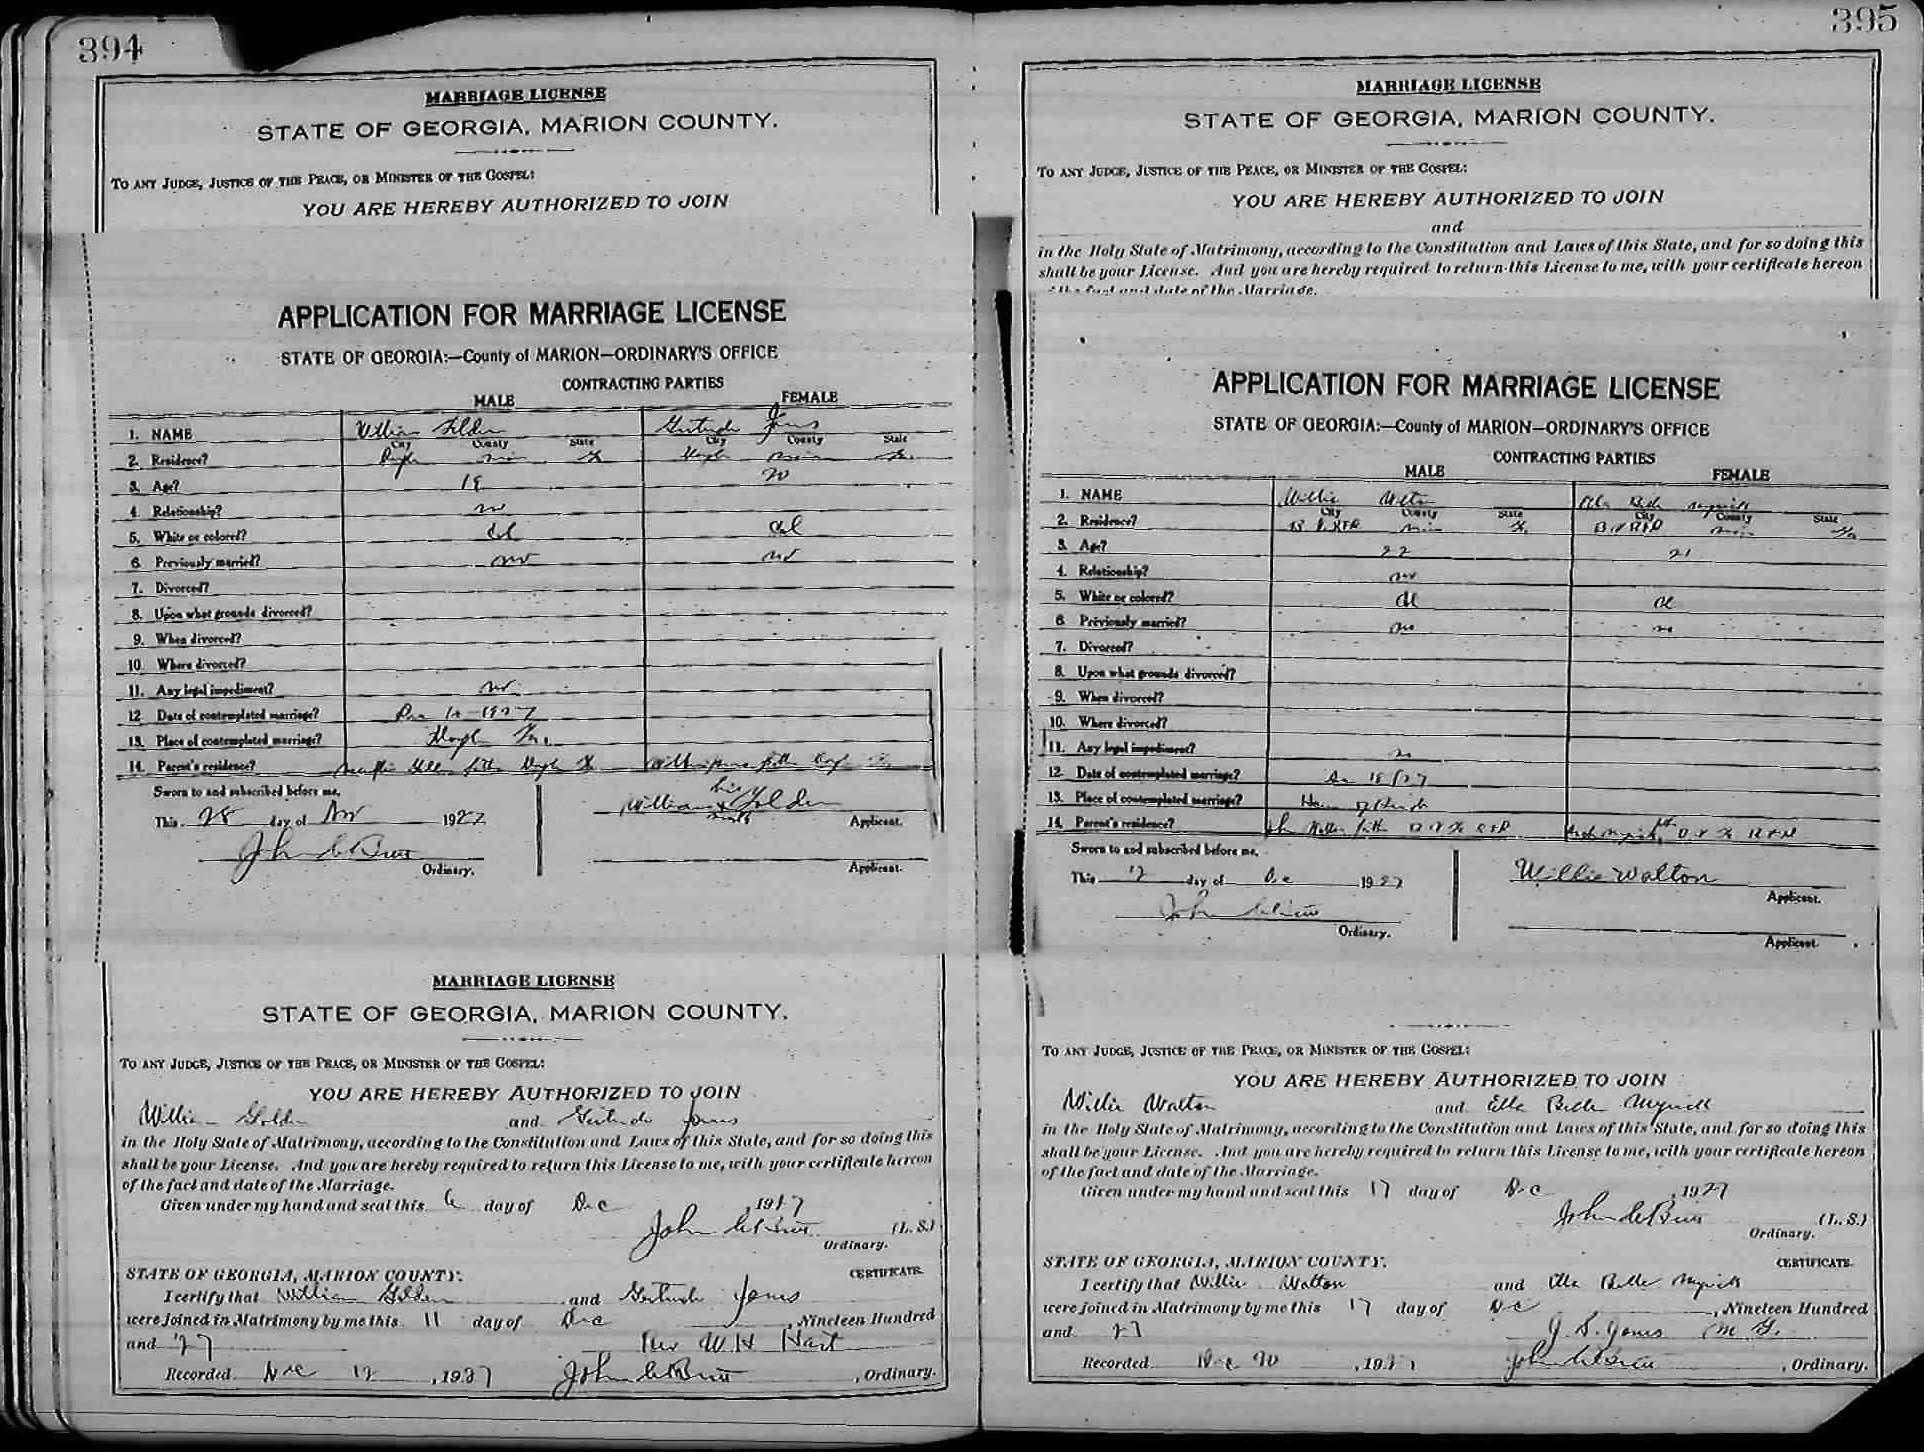 394
MARRIAGE LICENSE
STATE OF GEORGIA, MARION COUNTY.
TO ANY JUDGE, JUSTICE OF THE PEACE, OR MINISTER OF THE GOSPEL:
YOU ARE HEREBY AUTHORIZED TO JOIN
APPLICATION FOR MARRIAGE LICENSE
STATE OF GEORGIA:—County of MARION—ORDINARY'S OFFICE
CONTRACTING PARTIES
MALE FEMALE
1. NAME William Golden Gertrude Jones
City County State City County State
2. Residence?
3. Age? 19 20
4. Relationship? no
5. White or colored? Col Col
6. Previously married? no no
7. Divorced?
8. Upon what grounds divorced?
9. When divorced?
10. Where divorced?
11. Any legal impediment? no
12. Date of contemplated marriage? 1927
13. Place of contemplated marriage?
14. Parent's residence?
Sworn to and subscribed before me,
This 28 day of Nov 1927
his
William x Golden
mark
Applicant.
Ordinary.
Applicant.
MARRIAGE LICENSE
STATE OF GEORGIA, MARION COUNTY.
TO ANY JUDGE, JUSTICE OF THE PEACE, OR MINISTER OF THE GOSPEL:
YOU ARE HEREBY AUTHORIZED TO JOIN
William Golden and Gertrude Jones
in the Holy State of Matrimony, according to the Constitution and Laws of this State, and for so doing this
shall be your License. And you are hereby required to return this License to me, with your certificate hereon
of the fact and date of the Marriage.
Given under my hand and seal this 6 day of Dec, 1927
John C Butt (L. S.)
Ordinary.
STATE OF GEORGIA, MARION COUNTY. CERTIFICATE.
I certify that William Golden and Gertrude Jones
were joined in Matrimony by me this 11 day of Dec, Nineteen Hundred
and 27 Rev W H Hart
Recorded Dec 12, 1927 John C Butt, Ordinary.
395
MARRIAGE LICENSE
STATE OF GEORGIA, MARION COUNTY.
TO ANY JUDGE, JUSTICE OF THE PEACE, OR MINISTER OF THE GOSPEL:
YOU ARE HEREBY AUTHORIZED TO JOIN
and
in the Holy State of Matrimony, according to the Constitution and Laws of this State, and for so doing this
shall be your License. And you are hereby required to return this License to me, with your certificate hereon
of the fact and date of the Marriage.
APPLICATION FOR MARRIAGE LICENSE
STATE OF GEORGIA:—County of MARION—ORDINARY'S OFFICE
CONTRACTING PARTIES
MALE FEMALE
1. NAME Willie Walton Ella Belle Myrick
City County State City County State
2. Residence?
3. Age? 22 21
4. Relationship? no
5. White or colored? Col Col
6. Previously married? no no
7. Divorced?
8. Upon what grounds divorced?
9. When divorced?
10. Where divorced?
11. Any legal impediment? no
12. Date of contemplated marriage?
13. Place of contemplated marriage?
14. Parent's residence?
Sworn to and subscribed before me,
This day of Dec 1927
Willie Walton
Applicant.
Ordinary.
Applicant.
TO ANY JUDGE, JUSTICE OF THE PEACE, OR MINISTER OF THE GOSPEL:
YOU ARE HEREBY AUTHORIZED TO JOIN
Willie Walton and Ella Belle Myrick
in the Holy State of Matrimony, according to the Constitution and Laws of this State, and for so doing this
shall be your License. And you are hereby required to return this License to me, with your certificate hereon
of the fact and date of the Marriage.
Given under my hand and seal this 17 day of Dec, 1927
John C Butt (L. S.)
Ordinary.
STATE OF GEORGIA, MARION COUNTY. CERTIFICATE.
I certify that Willie Walton and Ella Belle Myrick
were joined in Matrimony by me this 17 day of Dec, Nineteen Hundred
and 27 J. S. Jones M. G.
Recorded Dec 20, 1927 John C Butt, Ordinary.